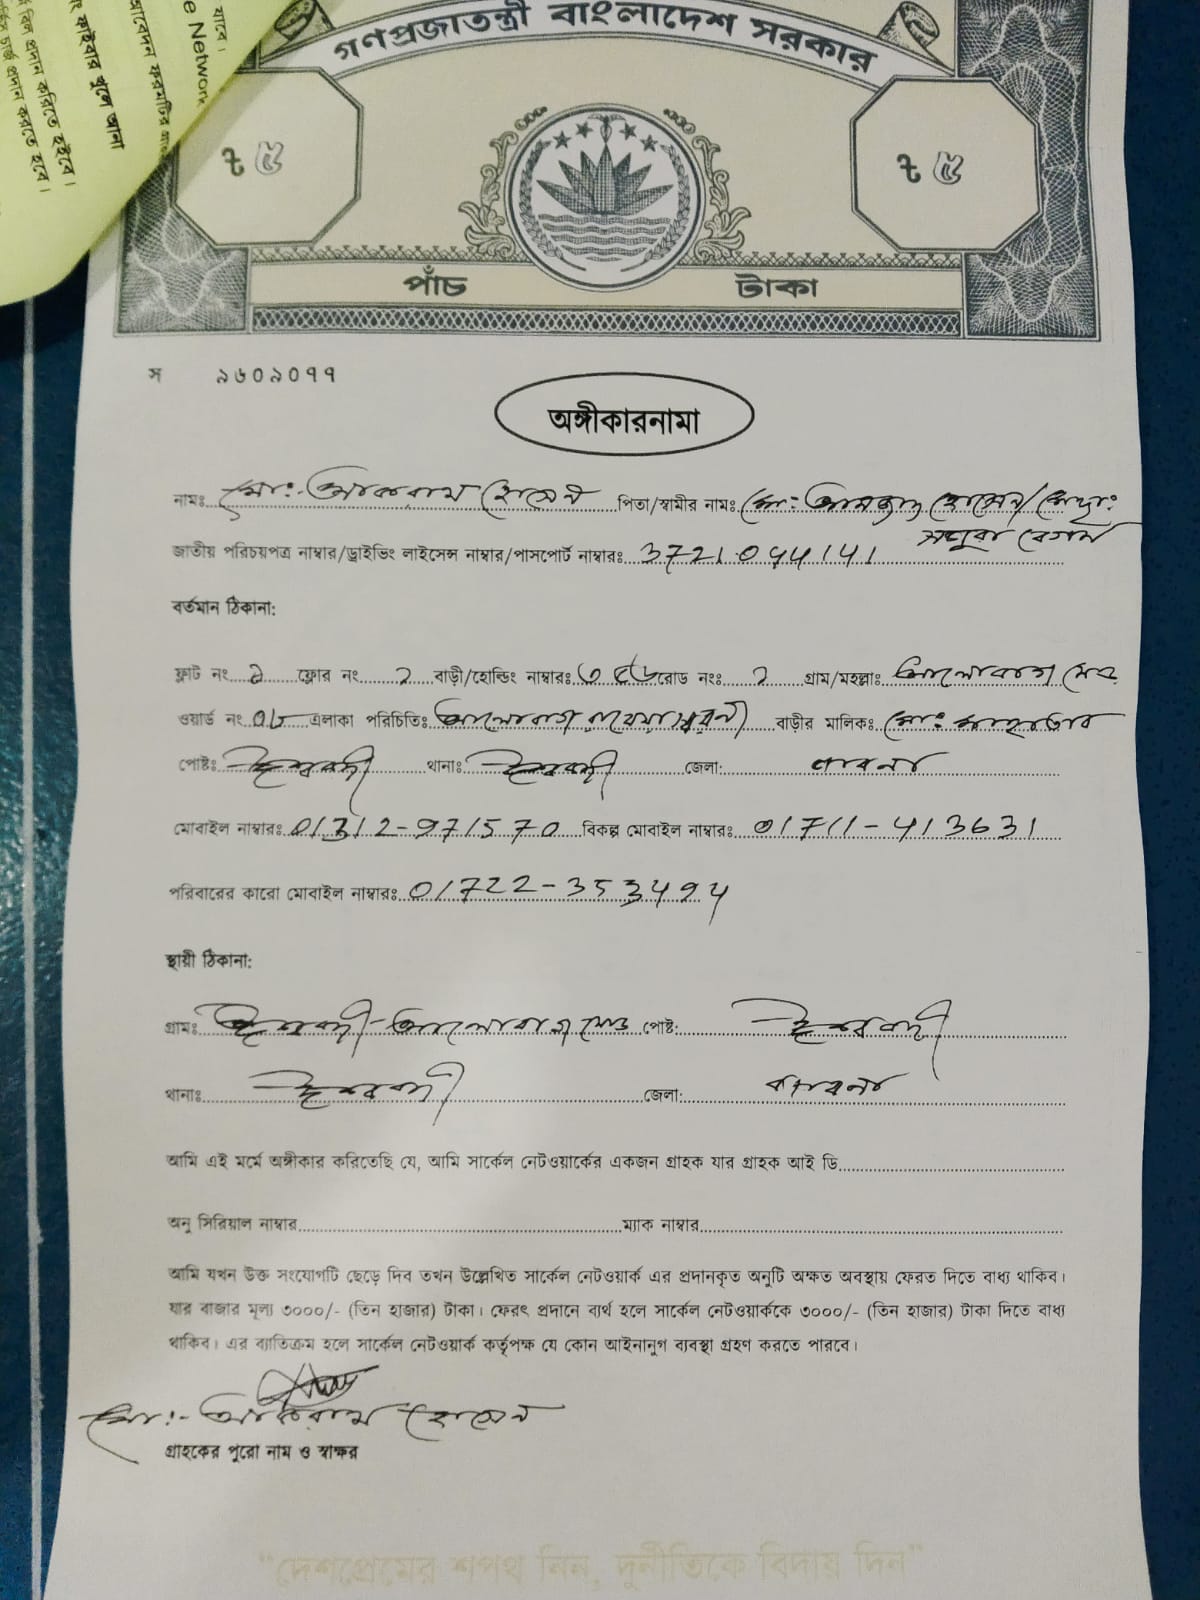 গণপ্রজাতন্ত্রী বাংলাদেশ সরকার
৳ ৫ ৳ ৫
পাঁচ টাকা
স ৯৬০৯০৭৭
অঙ্গীকারনামা
নামঃ মোঃ- আকরাম হোসেন পিতা/স্বামীর নামঃ মোঃ আমজাদ হোসেন/মোছাঃ
বেগম
জাতীয় পরিচয়পত্র নাম্বার/ড্রাইভিং লাইসেন্স নাম্বার/পাসপোর্ট নাম্বারঃ
বর্তমান ঠিকানা:
ফ্লাট নং ফ্লোর নং ২ বাড়ী/হোল্ডিং নাম্বারঃ রোড নংঃ ২ গ্রাম/মহল্লাঃ আলোবাগ মোড়
ওয়ার্ড নং ০৮ এলাকা পরিচিতিঃ আলোবাগ বাড়ীর মালিকঃ মোঃ
পোষ্টঃ ঈশ্বরদী থানাঃ ঈশ্বরদী জেলা: পাবনা
মোবাইল নাম্বারঃ 01312-971570 বিকল্প মোবাইল নাম্বারঃ 01711-413631
পরিবারের কারো মোবাইল নাম্বারঃ 01722-353494
স্থায়ী ঠিকানা:
গ্রামঃ ঈশ্বরদী-আলোবাগ মোড় পোষ্ট: ঈশ্বরদী
থানাঃ ঈশ্বরদী জেলা: পাবনা
আমি এই মর্মে অঙ্গীকার করিতেছি যে, আমি সার্কেল নেটওয়ার্কের একজন গ্রাহক যার গ্রাহক আই ডি
অনু সিরিয়াল নাম্বার ম্যাক নাম্বার
আমি যখন উক্ত সংযোগটি ছেড়ে দিব তখন উল্লেখিত সার্কেল নেটওয়ার্ক এর প্রদানকৃত অনুটি অক্ষত অবস্থায় ফেরত দিতে বাধ্য থাকিব।
যার বাজার মূল্য ৩০০০/- (তিন হাজার) টাকা। ফেরৎ প্রদানে ব্যর্থ হলে সার্কেল নেটওয়ার্ককে ৩০০০/- (তিন হাজার) টাকা দিতে বাধ্য
থাকিব। এর ব্যতিক্রম হলে সার্কেল নেটওয়ার্ক কর্তৃপক্ষ যে কোন আইনানুগ ব্যবস্থা গ্রহণ করতে পারবে।
মোঃ- আকরাম হোসেন
গ্রাহকের পুরো নাম ও স্বাক্ষর
"দেশপ্রেমের শপথ নিন, দুর্নীতিকে বিদায় দিন"
যাবে।
e Network
আবেদন ফরমটির
ফাইবার খুলে আনা
বিল প্রদান করিতে হইবে।
চার্জ প্রদান করতে হবে।